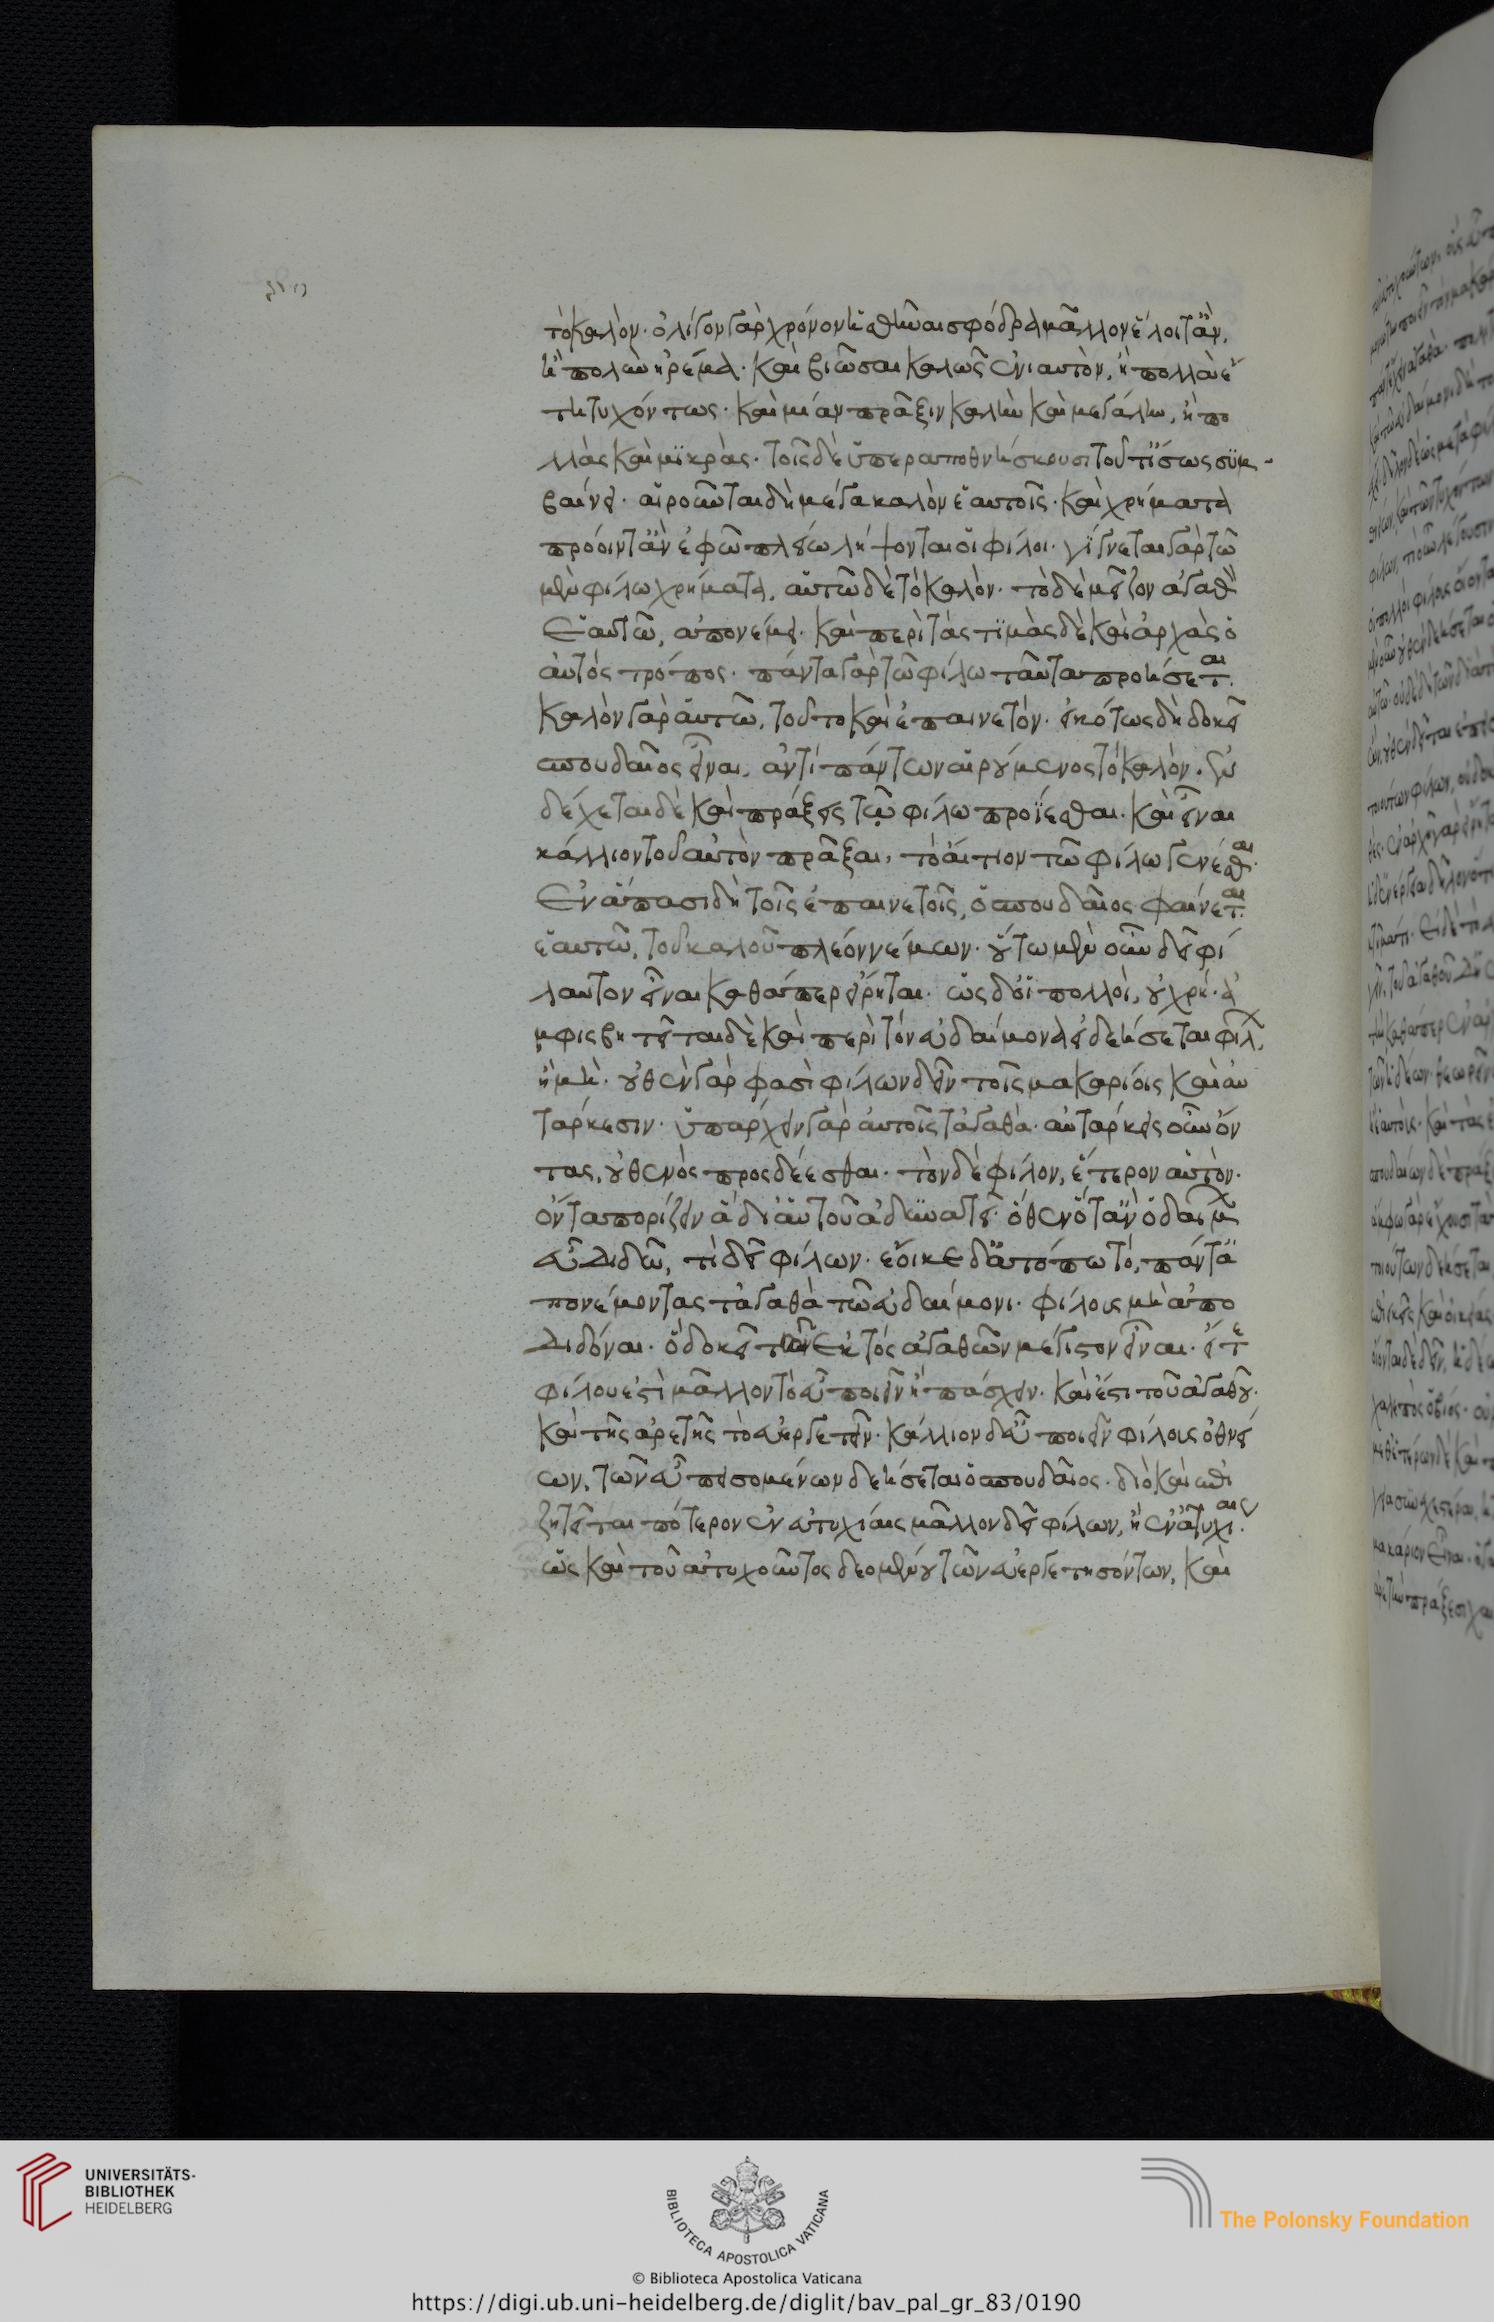 τὸ καλὸν· ὀλίγον γὰρ χρόνον ἡσθῆναι σφόδρα μᾶλλον ἕλοιτ' ἂν,
ἢ πολὺν ἠρέμα· καὶ βιῶσαι καλῶς ἐνιαυτὸν, ἢ πολλὰ ἔ
τη τυχόντως· καὶ μίαν πρᾶξιν καλὴν καὶ μεγάλην, ἢ πο
λλὰς καὶ μϊκρὰς· τοῖς δὲ ὑπεραποθνήσκουσι τοῦτ' ἴσως συμ
βαίνει· αἱροῦνται δὴ μέγα καλὸν ἑαυτοῖς· καὶ χρήματα
πρόοιντ' ἂν ἐφ' ᾧ πλείω λήψονται οἱ φίλοι· γίγνεται γὰρ τῶ
μὲν φίλω χρήματα, αὑτῶ δὲ τὸ καλὸν· τὸ δὲ μεῖζον ἀγαθὸν
ἑαυτῶ, ἀπονέμει· καὶ περὶ τὰς τϊμὰς δὲ καὶ ἀρχὰς ὁ
αὐτὸς τρόπος· πάντα γὰρ τῶ φίλω ταῦτα προήσεται·
καλὸν γὰρ αὑτῶ, τοῦτο καὶ ἐπαινετόν· εἰκότως δὴ δοκεῖ
σπουδαῖος εἶναι, ἀντὶ πάντων αἱρούμενος τὸ καλὸν· ἐν
δέχεται δὲ καὶ πράξεις τῶ φίλω προΐεσθαι· καὶ εἶναι
κάλλιον τοῦ αὐτὸν πρᾶξαι, τὸ αἴτιον τῶ φίλω γενέσθαι·
ἐν ἅπασι δὴ τοῖς ἐπαινετοῖς, ὁ σπουδαῖος φαίνεται
ἑαυτῶ, τοῦ καλοῦ πλέον νέμων· οὕτω μὲν οὖν δεῖ φί
λαυτον εἶναι καθάπερ εἴρηται· ὡς δ' οἱ πολλοὶ, οὐ χρή· ἀ
μφισβητεῖται δὲ καὶ περὶ τὸν εὐδαίμονα εἰ δεήσεται φίλων,
ἢ μὴ· οὐθὲν γὰρ φασὶ φίλων δεῖν τοῖς μακαρίοις καὶ αὐ
τάρκεσιν· ὑπάρχειν γὰρ αὐτοῖς τἀγαθὰ· αὐτάρκεις οὖν ὄν
τας, οὐθενὸς προσδέεσθαι· τὸν δὲ φίλον, ἕτερον αὐτὸν·
ὄντα πορίζειν ἃ δι' αὑτοῦ ἀδυνατεῖ· ὅθεν ὅταν ὁ δαίμων
εὖ διδῶ, τί δεῖ φίλων· ἔοικε δ' ἀτόπω τὸ, πάντα
πονέμοντας τἀγαθὰ τῶ εὐδαίμονι· φίλους μὴ ἀπο
διδόναι· ὃ δοκεῖ τῶν ἐκτὸς ἀγαθῶν μέγιστον εἶναι· εἴ τε
φίλου ἐστὶ μᾶλλον τὸ εὖ ποιεῖν ἢ πάσχειν· καὶ ἔστι τοῦ ἀγαθοῦ·
καὶ τῆς ἀρετῆς τὸ εὐεργετεῖν· κάλλιον δ' εὖ ποιεῖν φίλους ὀθνεί
ων, τῶν εὖ πεισομένων δεήσεται ὁ σπουδαῖος· διὸ καὶ ἐπι
ζητεῖται πότερον ἐν εὐτυχίαις μᾶλλον δεῖ φίλων, ἢ ἐν ἀτυχίαις·
ὡς καὶ τοῦ ἀτυχοῦντος δεομένου τῶν εὐεργετησόντων, καὶ
UNIVERSITÄTS-
BIBLIOTHEK
HEIDELBERG
BIBLIOTECA APOSTOLICA VATICANA
The Polonsky Foundation
© Biblioteca Apostolica Vaticana
https://digi.ub.uni-heidelberg.de/diglit/bav_pal_gr_83/0190